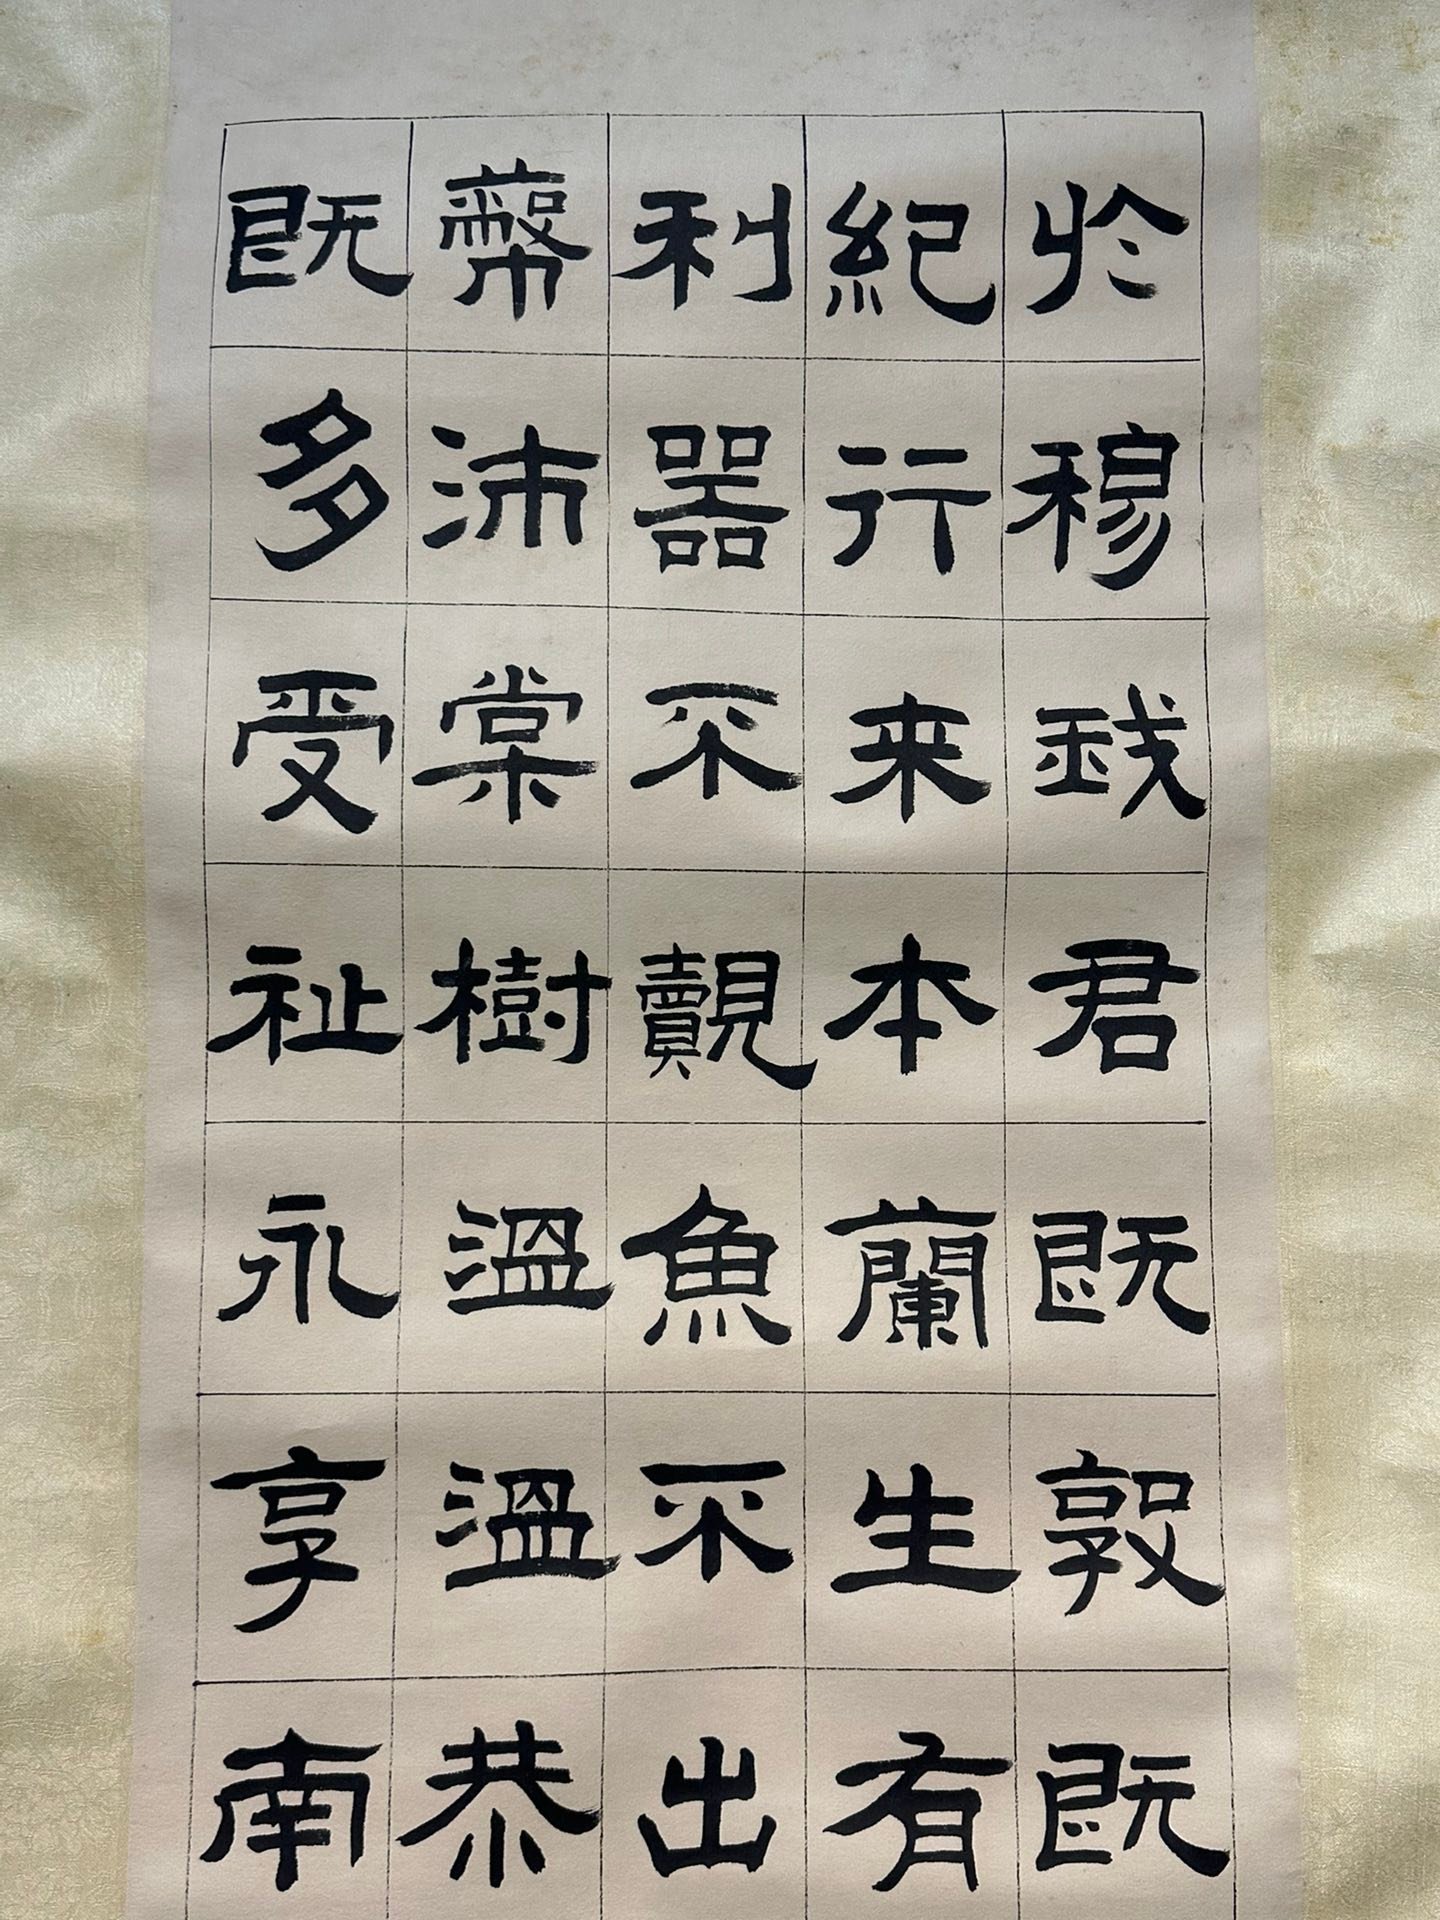 於穆我君既敦既
紀行来本蘭生有
利器不覿魚不出
蔽沛棠樹温温恭
既多受祉永享南